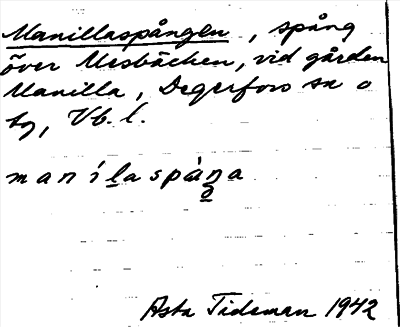 Manillaspången, spång
över Mesbäcken, vid gården
Manilla, Degerfors sn o
by, Vb. l.
Asta Tideman 1942